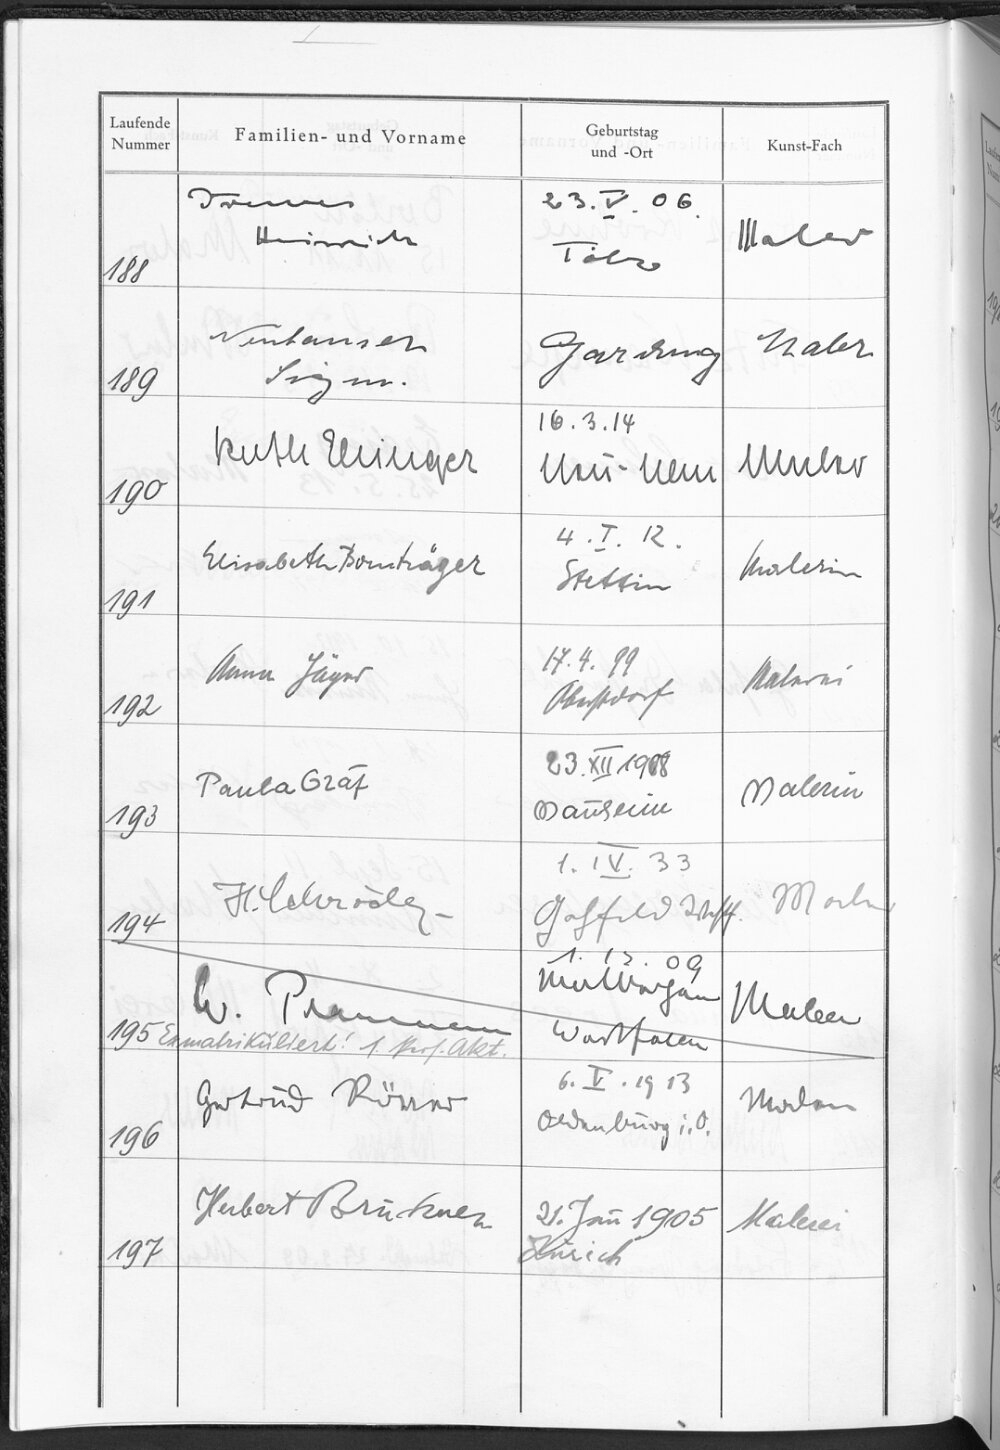 Laufende
Nummer
Familien- und Vorname
Geburtstag
und -Ort
Kunst-Fach
188
Heinrich
23. V. 06.
Tölz
Maler
189
Neuhauser
Sigm.
Garching
Maler
190
Ruth Ellinger
16.3.14
Neu-Ulm
Maler
191
Elisabeth Bornträger
4. I. 12.
Stettin
Malerin
192
Anna Jäger
17.4.99
Oberstdorf
Malerei
193
Paula Gräf
23. XII 1908
Malerin
194
H. Schröder
1. IV. 33
Gohfeld Westf.
Maler
195
W.
Exmatrikuliert! 1 Prof. Akt.
1. 12. 09
Westfalen
Maler
196
Gertrud
6. V. 1913
Oldenburg i. O.
Malen
197
Herbert Bruckner
21. Jan 1905
Zürich
Malerei